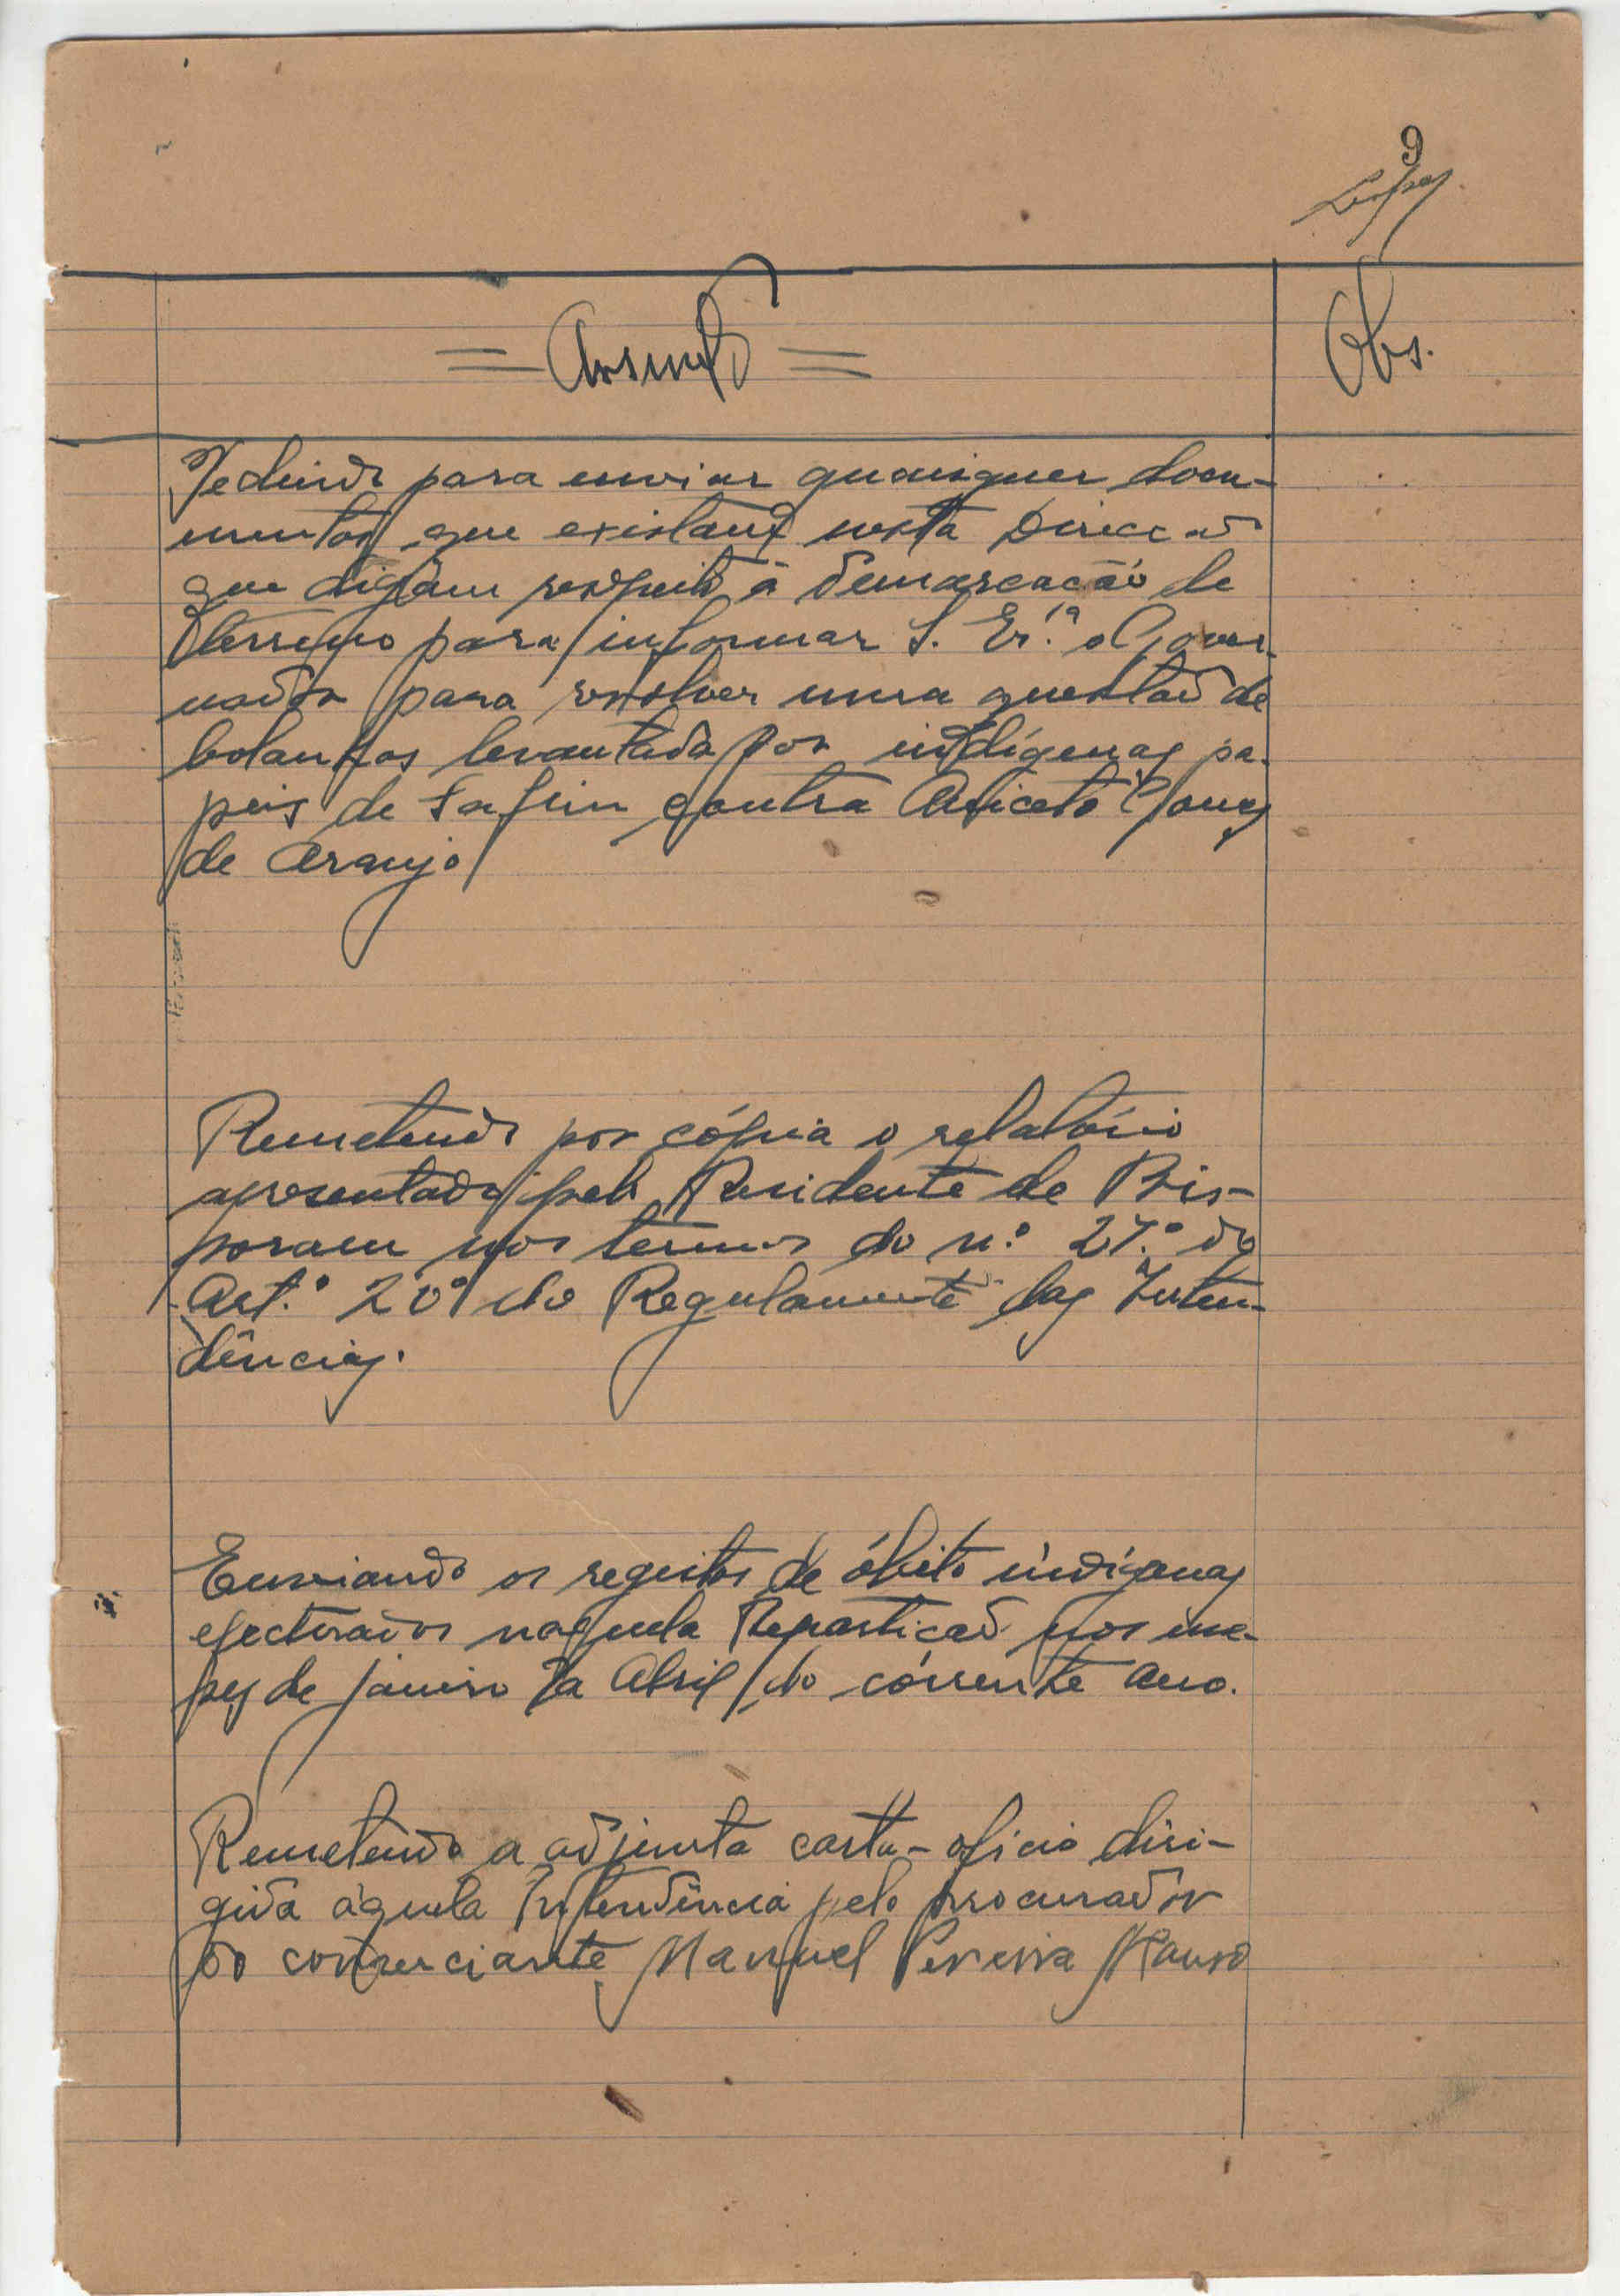 9
Lopes
= Assunto =
Obs.
Pedindo para enviar quaisquer docu-
mentos que existam nesta Direccão
que digam respeito à demarcação de
terreno para informar S. Ex.ª o Gover-
nador para resolver uma questão de
bolanhas levantada por indígenas pa-
peis de Safim contra Aniceto Gomes
de Araujo
Remetendo por cópia o relatório
apresentado pelo Residente de Bis-
soram nos termos do n.º 27.º do
Art.º 20º do Regulamento das Inten-
dências.
Enviando os registos de óbito indígenas
efectuados naquela Repartição nos me-
ses de janeiro a Abril do corrente ano.
Remetendo a adjunta carta-oficio diri-
gida àquela Intendência pelo procurador
do comerciante Manuel Pereira